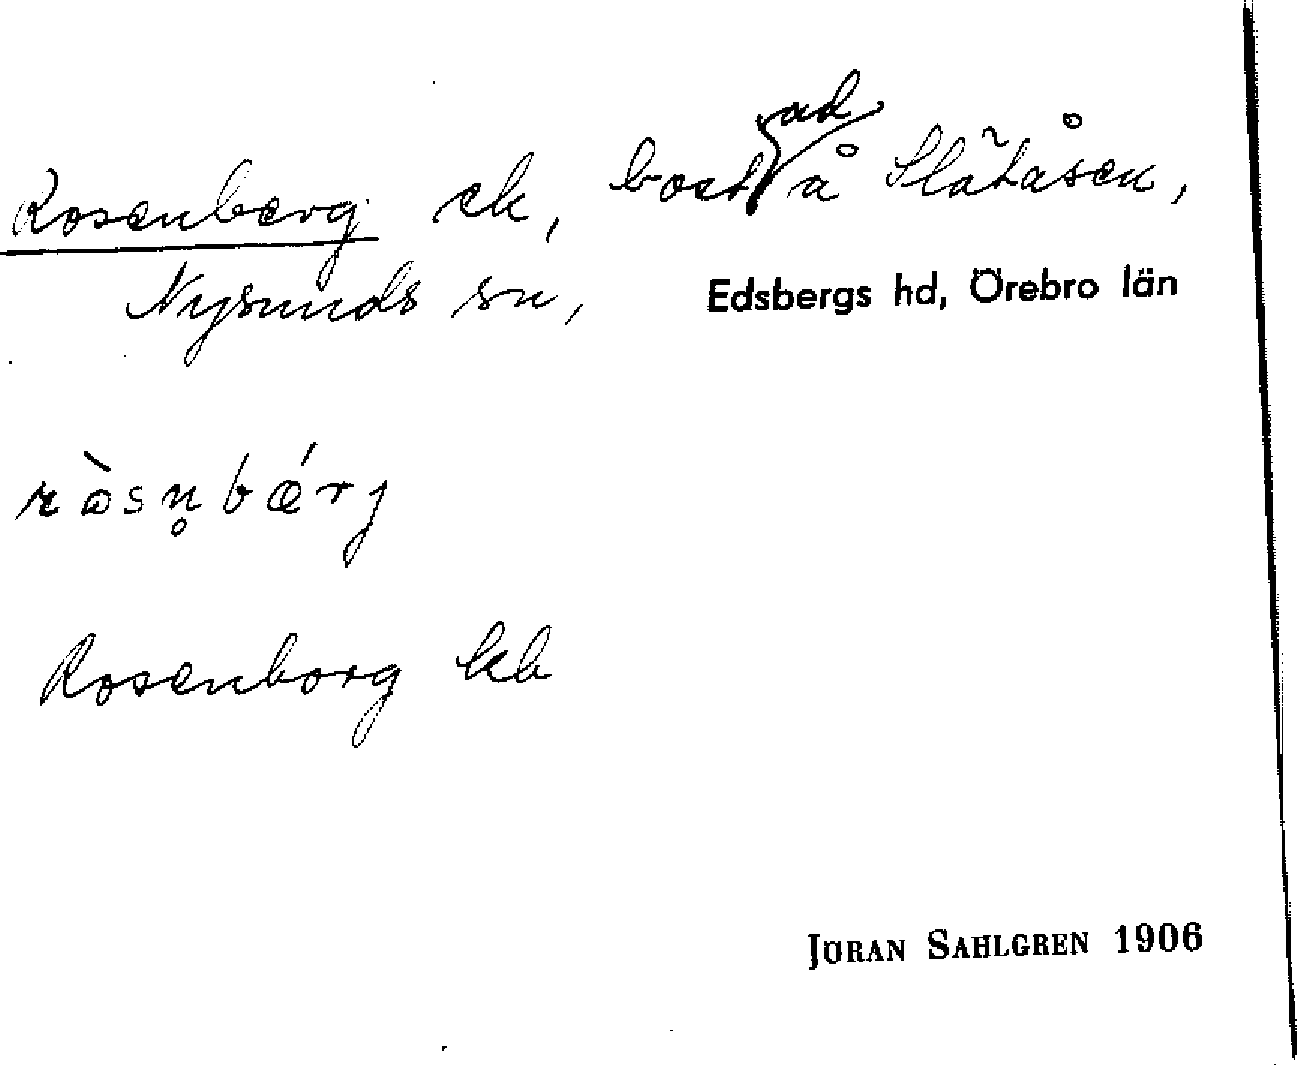 Rosenberg ck, bostad å Slätåsen,
Nysunds sn, Edsbergs hd, Örebro län
ròsn̥bǽrj
Rosenborg kb
JÖRAN SAHLGREN 1906